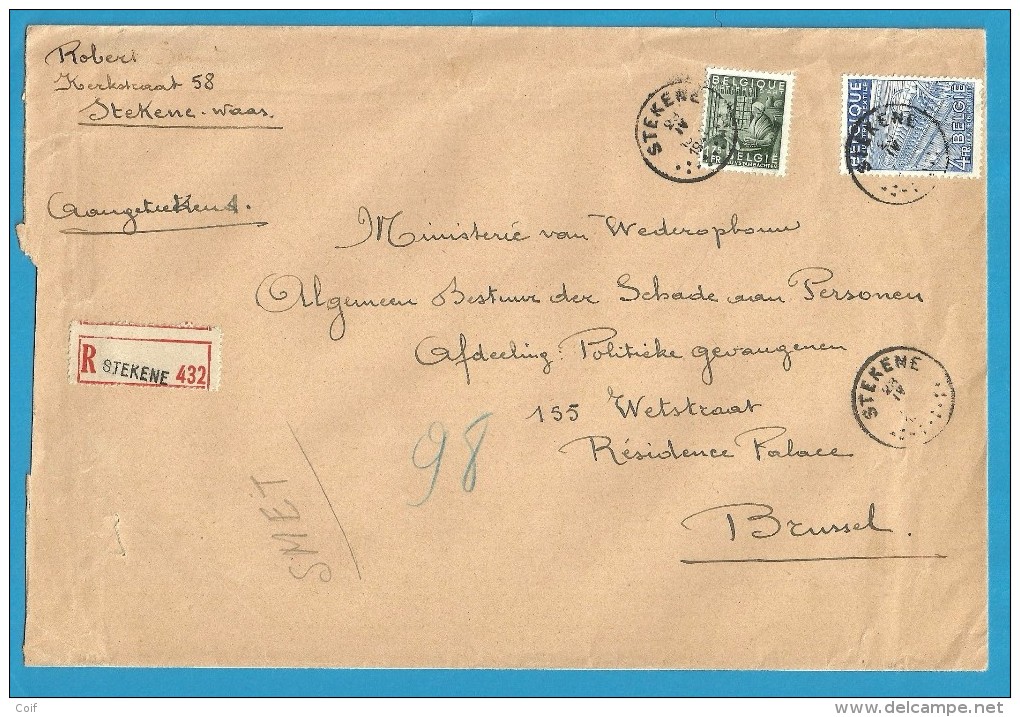 Robert
Kerkstraat 58
Stekene-Waas.
Aangetekend.
STEKENE
IV
BELGIQUE
1,75
FR
BELGIE
BELGIQUE
4 FR
BELGIE
STEKENE
IV
Ministerie van Wederopbouw
Algemeen Bestuur der Schade aan Personen
Afdeeling: Politieke gevangenen
155 Wetstraat
Résidence Palace
Brussel.
R STEKENE 432
STEKENE
IV
98
SMET
Coif
delcampe.net